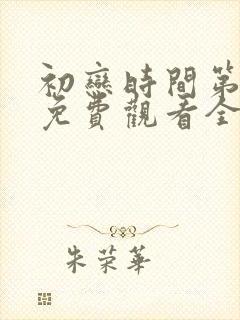 初戀時間第
免費觀看全
朱荣華